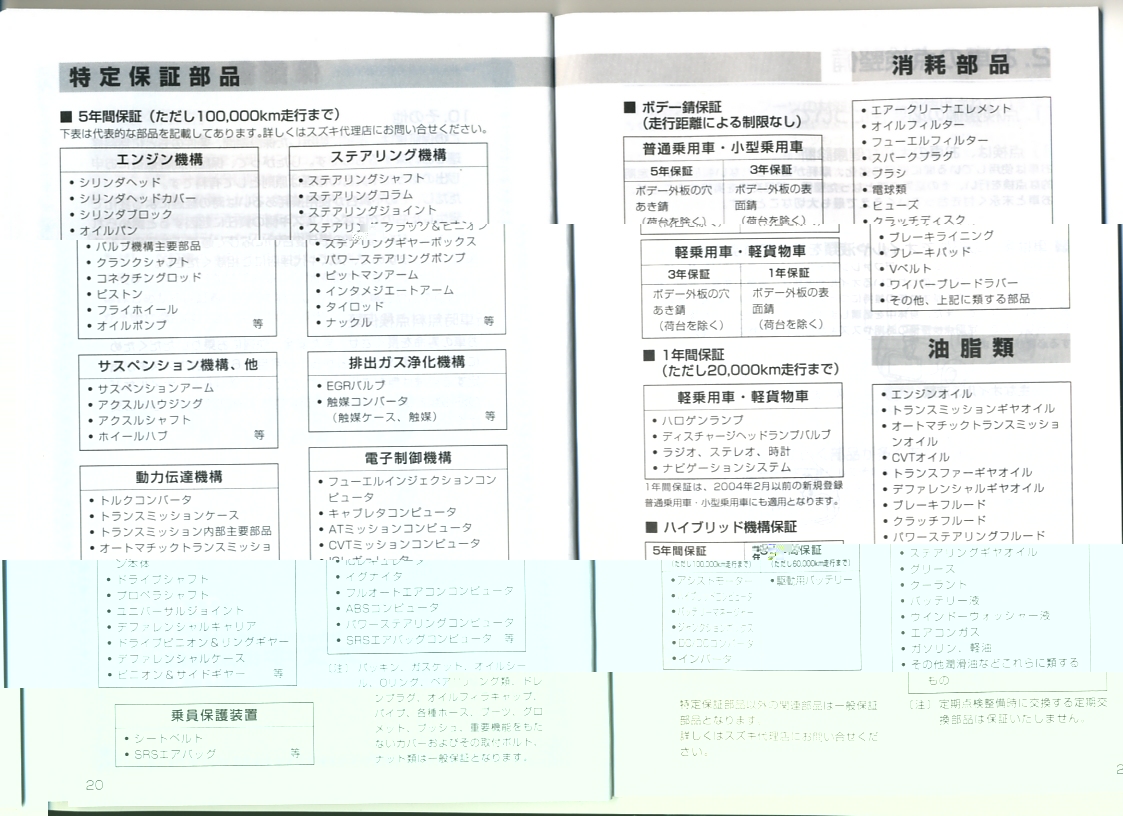 特定保証部品
■ 5年間保証（ただし100,000km走行まで）
下表は代表的な部品を記載してあります。詳しくはスズキ代理店にお問い合せください。
エンジン機構
• シリンダヘッド
• シリンダヘッドカバー
• シリンダブロック
• オイルパン
• バルブ機構主要部品
• クランクシャフト
• コネクチングロッド
• ピストン
• フライホイール
• オイルポンプ 等
サスペンション機構、他
• サスペンションアーム
• アクスルハウジング
• アクスルシャフト
• ホイールハブ 等
動力伝達機構
• トルクコンバータ
• トランスミッションケース
• トランスミッション内部主要部品
• オートマチックトランスミッショ
ン本体
• ドライブシャフト
• プロペラシャフト
• ユニバーサルジョイント
• デファレンシャルキャリア
• ドライブピニオン＆リングギヤー
• デファレンシャルケース
• ピニオン＆サイドギヤー 等
乗員保護装置
• シートベルト
• SRSエアバッグ 等
ステアリング機構
• ステアリングシャフト
• ステアリングコラム
• ステアリングジョイント
• ステアリングギヤーボックス
• パワーステアリングポンプ
• ピットマンアーム
• インタメジエートアーム
• タイロッド
• ナックル 等
排出ガス浄化機構
• EGRバルブ
• 触媒コンバータ
（触媒ケース、触媒） 等
電子制御機構
• フューエルインジェクションコン
ピュータ
• キャブレタコンピュータ
• ATミッションコンピュータ
• CVTミッションコンピュータ
• イグナイタ
• フルオートエアコンコンピュータ
• ABSコンピュータ
• パワーステアリングコンピュータ
• SRSエアバッグコンピュータ 等
（注） パッキン、ガスケット、オイルシー
ル、Oリング、ベアリング類、ドレ
ンプラグ、オイルフィラキャップ、
パイプ、各種ホース、ブーツ、グロ
メット、ブッシュ、重要機能をもた
ないカバーおよびその取付ボルト、
ナット類は一般保証となります。
20
■ ボデー錆保証
（走行距離による制限なし）
普通乗用車・小型乗用車
5年保証 3年保証
ボデー外板の穴 ボデー外板の表
あき錆 面錆
（荷台を除く） （荷台を除く）
軽乗用車・軽貨物車
3年保証 1年保証
ボデー外板の穴 ボデー外板の表
あき錆 面錆
（荷台を除く） （荷台を除く）
■ 1年間保証
（ただし20,000km走行まで）
軽乗用車・軽貨物車
• ハロゲンランプ
• ディスチャージヘッドランプバルブ
• ラジオ、ステレオ、時計
• ナビゲーションシステム
1年間保証は、2004年2月以前の新規登録
普通乗用車・小型乗用車にも適用となります。
■ ハイブリッド機構保証
5年間保証 間保証
（ただし100,000km走行まで） （ただし60,000km走行まで）
• アシストモーター • 駆動用バッテリー
• インバータ
特定保証部品以外の関連部品は一般保証
部品となります。
詳しくはスズキ代理店にお問い合せくだ
さい。
消耗部品
• エアークリーナエレメント
• オイルフィルター
• フューエルフィルター
• スパークプラグ
• ブラシ
• 電球類
• ヒューズ
• クラッチディスク
• ブレーキライニング
• ブレーキパッド
• Vベルト
• ワイパーブレードラバー
• その他、上記に類する部品
油脂類
• エンジンオイル
• トランスミッションギヤオイル
• オートマチックトランスミッショ
ンオイル
• CVTオイル
• トランスファーギヤオイル
• デファレンシャルギヤオイル
• ブレーキフルード
• クラッチフルード
• パワーステアリングフルード
• ステアリングギヤオイル
• グリース
• クーラント
• バッテリー液
• ウインドーウォッシャー液
• エアコンガス
• ガソリン、軽油
• その他潤滑油などこれらに類する
もの
（注） 定期点検整備時に交換する定期交
換部品は保証いたしません。